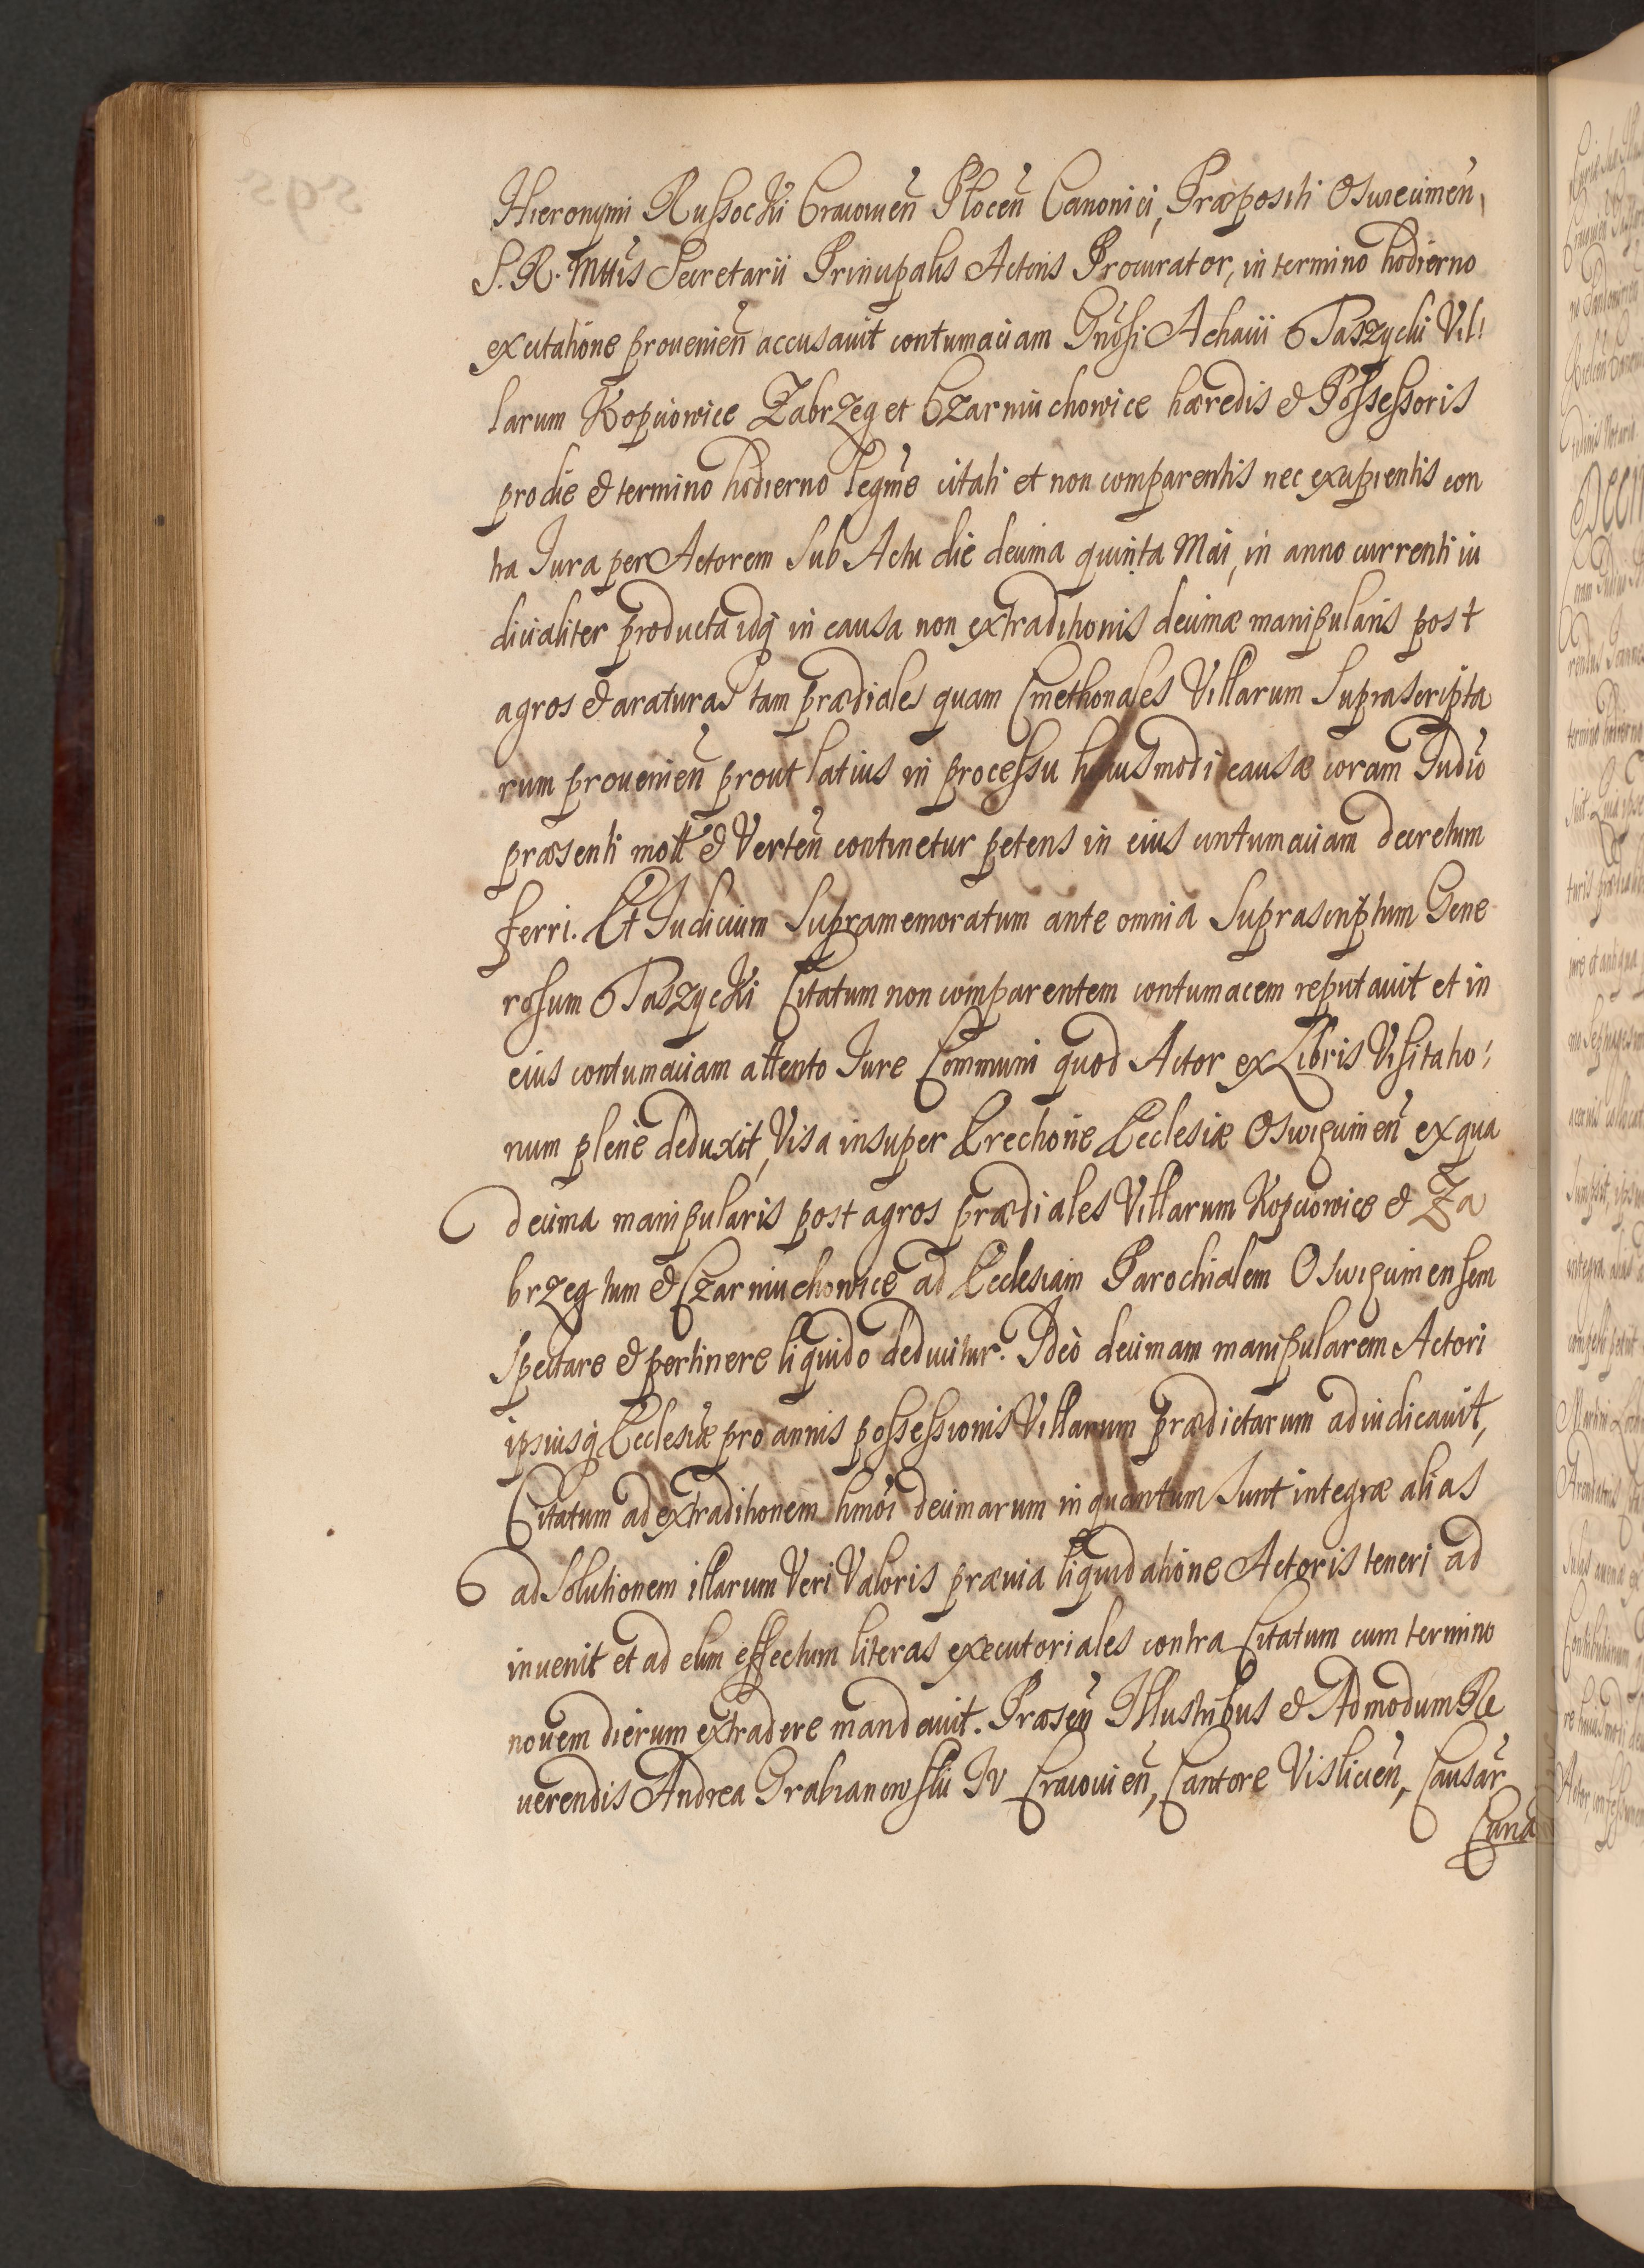 Hieronymi Russocki Cracouien̄ Plocen̄ Canonici, Præpositi Oswiecimen̄,
S. R. Mttis Secretarii Principalis Actoris Procurator, in termino hodierno
ex citatione prouenien̄ accusauit contumaciam Gn̄osi Achacii Taszycki Vil:
larum Kopciowice Zabrzeg et Czarniuchowice hæredis & Possessoris
pro die & termino hodierno legme citati et non comparentis nec excipientis con
tra Jura per Actorem sub Actu die decima quinta Mai, in anno currenti iu
dicialiter producta idq̃ in causa non extraditionis decimæ manipularis post
agros & araturas tam prædiales quam Cmethonales Villarum suprascripta
rum prouenien̄ prout latius in processu huiusmodi causæ coram Judio
præsenti mott & Verten̄ continetur petens in eius contumaciam decretum
ferri. Et Judicium supramemoratum ante omnia suprascriptum Gene
rosum Taszycki Citatum non comparentem contumacem reputauit et in
eius contumaciam attento Jure Communi quod Actor ex Libris Visitatio:
num plene deduxit, Visa insuper Erectione Ecclesiæ Oswiecimen̄ ex qua
decima manipularis post agros prædiales Villarum Kopciowice & Za
brzeg tum & Czarniuchowice ad Ecclesiam Parochialem Oswiecimensem
spectare & pertinere liquido deducitur. Ideò decimam manipularem Actori
ipsiusq̃ Ecclesiæ pro annis possessionis Villarum prædictarum adiudicauit,
Citatum ad extraditionem hmōi decimarum in quantum sunt integræ alias
ad solutionem illarum Veri Valoris præuia liquidatione Actoris teneri ad
inuenit et ad eum effectum literas executoriales contra Citatum cum termino
nouem dierum extradere mandauit. Præsen̄ Illustribus & Admodum Re
uerendis Andrea Grabianowski IV Cracouien̄, Cantore Vislicien̄, Causar̄